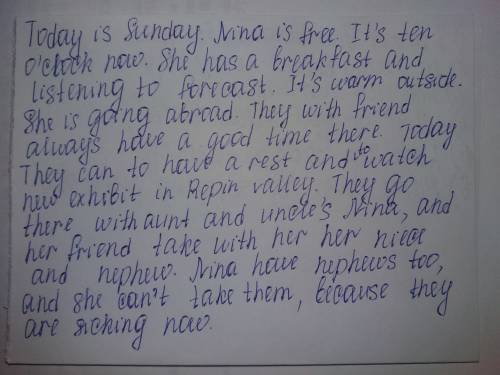 Today is Sunday. Nina is free. It's ten
o'clock now. She has a breakfast and
listening to forecast. It's warm outside.
She is going abroad. They with friend
always have a good time there. Today
They can to have a rest and to watch
new exhibit in Repin valley. They go
there with aunt and uncle's Nina, and
her friend take with her her niece
and nephew. Nina have nephews too,
and she can't take them, because they
are sicking now.